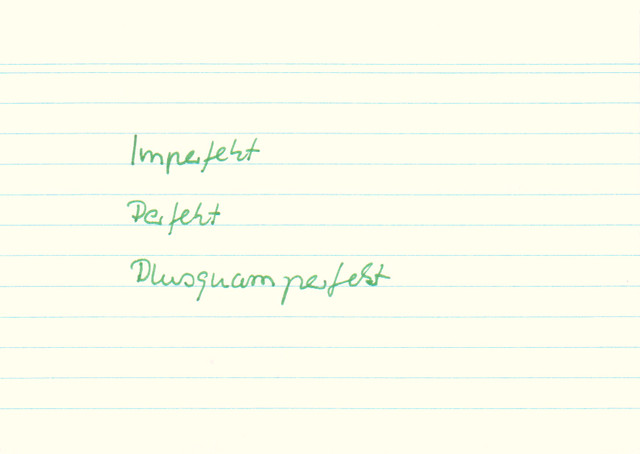 Imperfekt
Perfekt
Plusquamperfekt